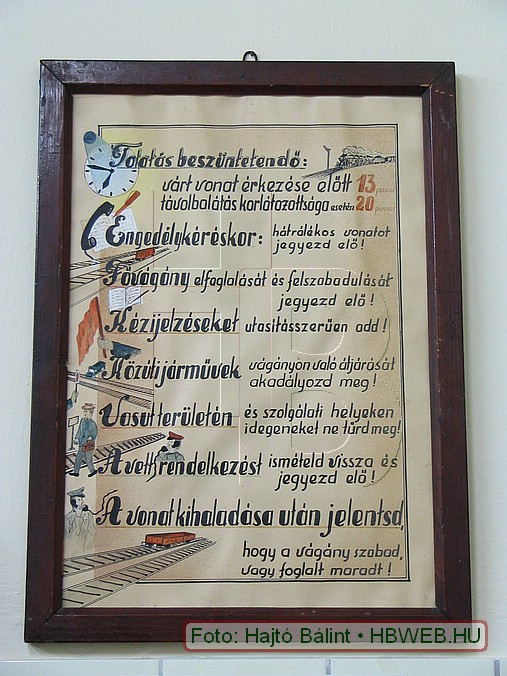 Tolatás beszüntetendő:
várt vonat érkezése előtt 13 perccel
távolbalátás korlátozottsága esetén 20 perccel
Engedélykéréskor: hátrálékos vonatot
jegyezd elő!
Fővágány elfoglalását és felszabadulását
jegyezd elő!
Kézijelzéseket utasításszerűen add!
Közúti járművek vágányon való átjárását
akadályozd meg!
Vasut területén és szolgálati helyeken
idegeneket ne tűrd meg!
A vett rendelkezést ismételd vissza és
jegyezd elő!
A vonat kihaladása után jelentsd,
hogy a vágány szabad,
vagy foglalt maradt!
Foto: Hajtó Bálint • HBWEB.HU